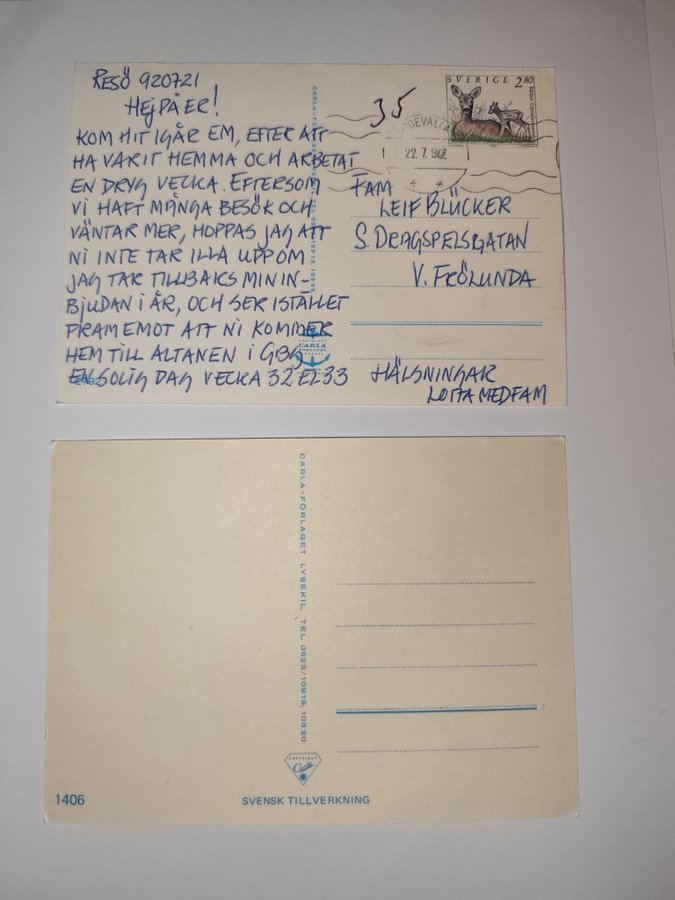 RESÖ 920721
HEJ PÅ ER!
KOM HIT IGÅR EM, EFTER ATT
HA VARIT HEMMA OCH ARBETAT
EN DRYG VECKA. EFTERSOM
VI HAFT MÅNGA BESÖK OCH
VÄNTAR MER, HOPPAS JAG ATT
NI INTE TAR ILLA UPP OM
JAG TAR TILLBAKS MIN IN-
BJUDAN I ÅR, OCH SER ISTÄLLET
FRAM EMOT ATT NI KOMMER
HEM TILL ALTANEN I GBG
EN SOLIG DAG VECKA 32 EL 33
HÄLSNINGAR
LOTTA MED FAM
35
SVERIGE 2.80
22.7.92
FAM
LEIF BLÜCKER
S. DRAGSPELSGATAN
V. FRÖLUNDA
COPYRIGHT
CARLA
CARLA-FÖRLAGET LYSEKIL, TEL. 0523/10919, 10320
COPYRIGHT
Carla
1406
SVENSK TILLVERKNING